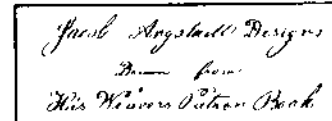 Jacob Angstadt Designs
Drawn from
His Weavers Patron Book